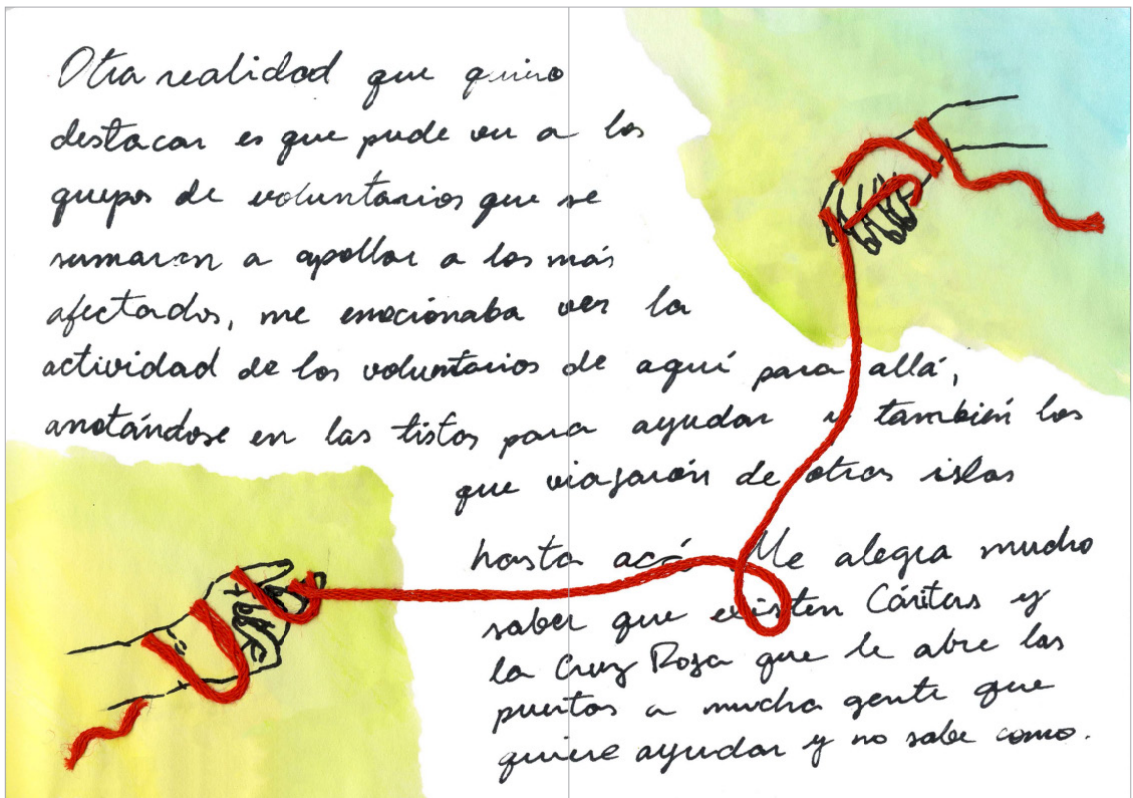 Otra realidad que quiero
destacar es que pude ver a los
grupos de voluntarios que se
sumaron a apollar a los más
afectados, me emocionaba ver la
actividad de los voluntarios de aquí para allá,
anotándose en las listas para ayudar y también los
que viajarón de otras islas
hasta acá. Me alegra mucho
saber que existen Cáritas y
la Cruz Roja que le abre las
puertas a mucha gente que
quiere ayudar y no sabe como.